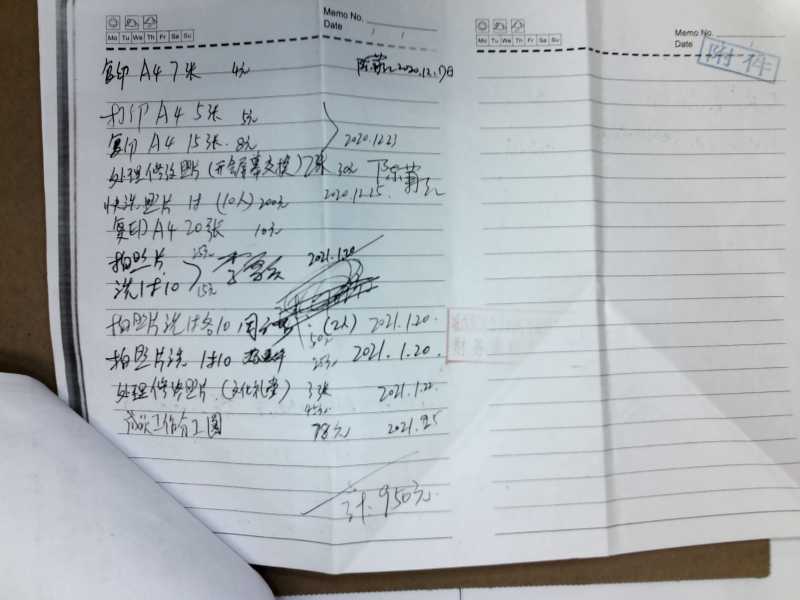 Memo No.
Date / /
Mo Tu We Th Fr Sa Su
复印 A4 7张 4元 2020.12.17日
打印 A4 5张 5元
复印 A4 15张 8元 2020.12.23
处理修改图片(开会屏幕交换)2张 30元 陈
快洗照片 1寸 (10人) 200元 2020.12.25.
复印 A4 20张 10元
拍照片 25元 2021.1.20
洗1寸10 15元
拍照片洗1寸各10 (2人) 2021.1.20.
50元
拍照片洗 1寸10 25元 2021.1.20.
处理修改照片(文化礼堂) 3张 2021.1.22
45元
工作分工图 78元 2021.2.5
计:950元
Memo No.
Date /
Mo Tu We Th Fr Sa Su
附件
财务